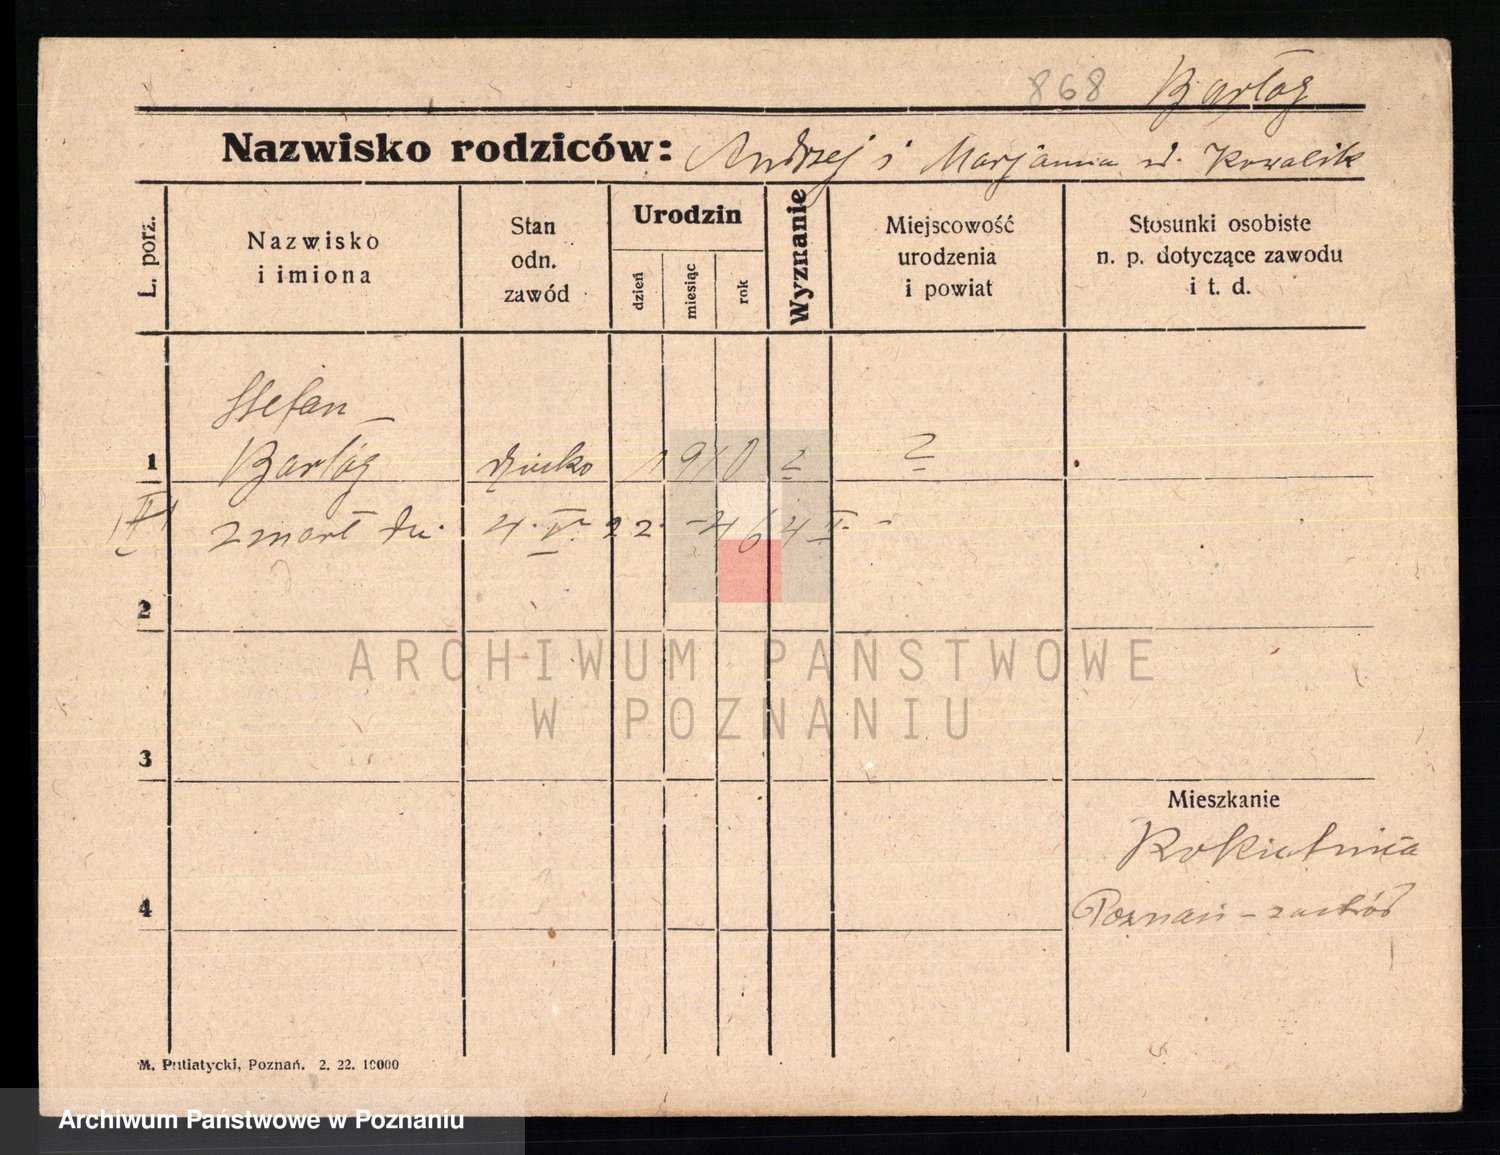 868 Bartóg
Nazwisko rodziców: Andrzej i Marjanna Kowalik
L. porz.
Nazwisko
i imiona
Stan
odn.
zawód
Urodzin
dzień
miesiąc
rok
Wyznanie
Miejscowość
urodzenia
i powiat
Stosunki osobiste
n. p. dotyczące zawodu
i t. d.
Stefan
1 Bartóg 1910 ? ?
zmarł 4. V. 22
2
ARCHIWUM PAŃSTWOWE
W POZNANIU
3
Mieszkanie
Rokietnica
4
Poznań - zachód
M. Putiatycki, Poznań. 2. 22. 10000
Archiwum Państwowe w Poznaniu